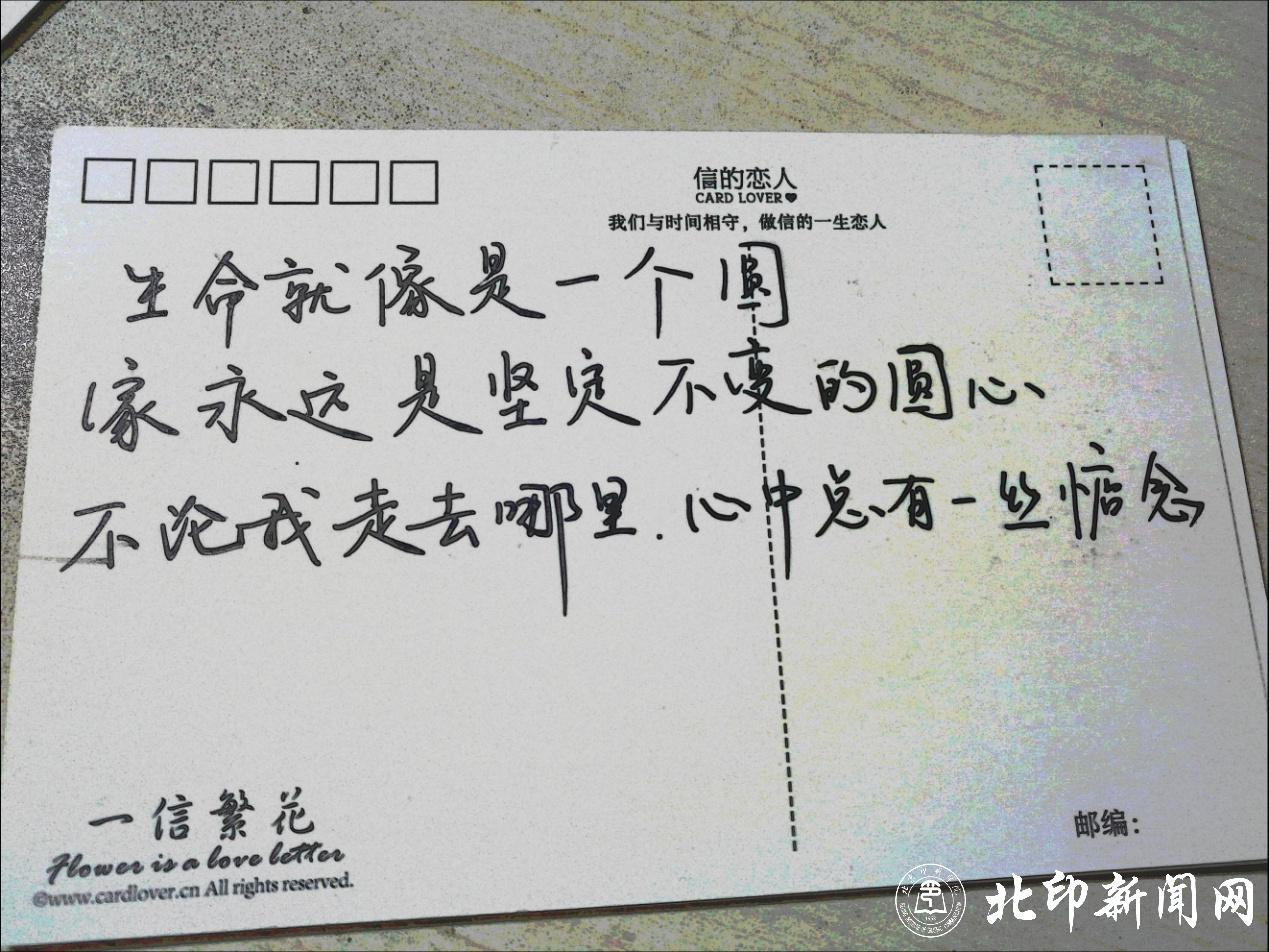 信的恋人
CARD LOVER
我们与时间相守，做信的一生恋人
生命就像是一个圆
傢永远是坚定不变的圆心
不论我走去哪里.心中总有一丝惦念
一信繁花
Flower is a love letter
©www.cardlover.cn All rights reserved.
邮编：
北印新闻网